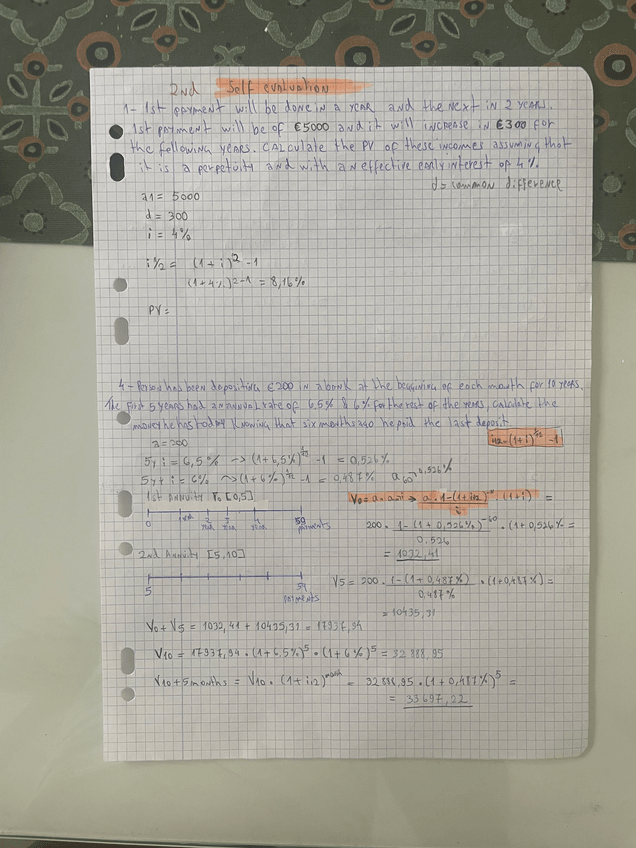 2nd Self evaluation
1- 1st payment will be done in a year and the next in 2 years.
1st payment will be of €5000 and it will increase in €300 for
the following years. Calculate the PV of these incomes assuming that
it is a perpetuity and with an effective early interest of 4%.
d = common difference
a1 = 5000
d = 300
i = 4%
i½ = (1+i)² -1
(1+4%)²-1 = 8,16%
PV =
4- Person has been depositing €200 in a bank at the beggining of each month for 10 years.
The first 5 years had an annual rate of 6,5% & 6% for the rest of the years, calculate the
money he has today knowing that six months ago he paid the last deposit.
i12 = (1+i)^1/12 -1
a = 200
5y i = 6,5% → (1+6,5%)^1/12 -1 = 0,526%
5y+ i = 6% → (1+6%)^1/12 -1 = 0,487% a60 0,526%
1st Annuity V0 [0,5]
V0 = a · a · 1-(1+i12)^-n · (1+i) =
i
0 1 year 2 year 3 year 4 year 59 payments
200 · 1-(1+0,526%)^-60 · (1+0,526% =
0,526
= 1032,41
2nd Annuity [5,10]
5 59 payments
V5 = 200 · 1-(1+0,487%) · (1+0,487%) =
0,487%
= 10435,31
V0 + V5 = 1032,41 + 10435,31 = 17937,94
V10 = 17937,94 · (1+6,5%)^5 · (1+6%)^5 = 32 888,95
V10+5months = V10 · (1+i12)^month = 32 888,95 · (1+0,487%)^5 =
= 33697,22